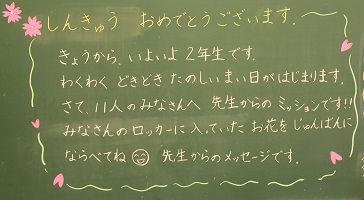 しんきゅう おめでとうございます.
きょうから、いよいよ 2年生です.
わくわく どきどき たのしい まい日が はじまります.
さて、11人の みなさんへ 先生からの ミッションです!!
みなさんの ロッカーに 入っていた お花を じゅんばんに
ならべてね 先生からのメッセージです.